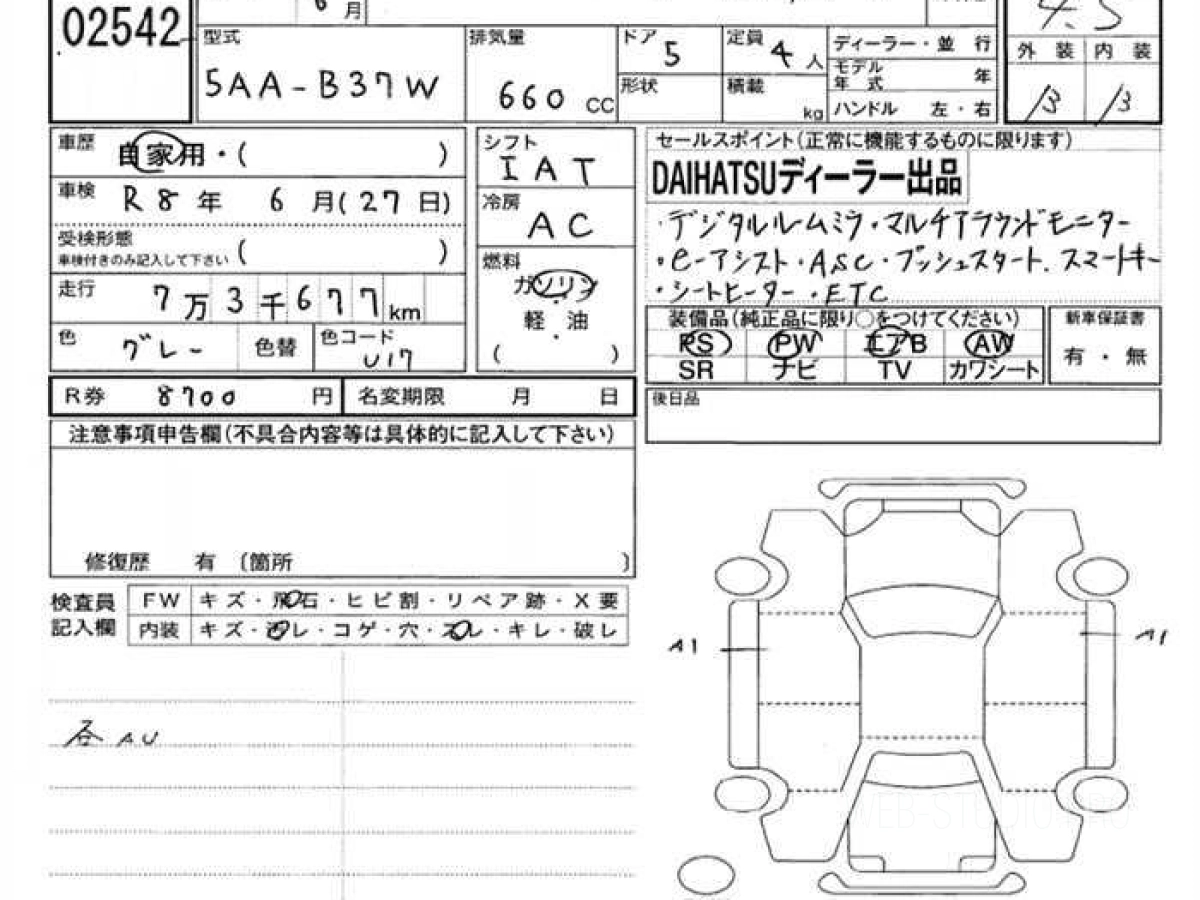 02542
6 月
型式 排気量 ドア 5 定員 4 人 ディーラー・並 行
5AA-B37W 660 CC 形状 積載 kg モデル年式 年
ハンドル 左・右
4.5
外 装 内 装
B B
車歴 自家用・( )
車検 R8年 6月(27日)
受検形態
車検付きのみ記入して下さい ( )
走行 7万3千677km
色 グレー 色替 色コード U17
シフト IAT
冷房 AC
燃料
ガソリン
・
軽 油
・
( )
セールスポイント(正常に機能するものに限ります)
DAIHATSUディーラー出品
・デジタルルームミラ・マルチアラウンドモニター
・e-アシスト・ASC・プッシュスタート.スマートキー
・シートヒーター・ETC
装備品(純正品に限り○をつけてください) 新車保証書
PS PW エアB AW 有・無
SR ナビ TV カワシート
R券 8700 円 名変期限 月 日
後日品
注意事項申告欄(不具合内容等は具体的に記入して下さい)
修復歴 有 〔箇所 〕
検査員 FW キズ・飛石・ヒビ割・リペア跡・X要
記入欄 内装 キズ・汚レ・コゲ・穴・スレ・キレ・破レ
A1 A1
各AU
WEB-STUDIO.PRO